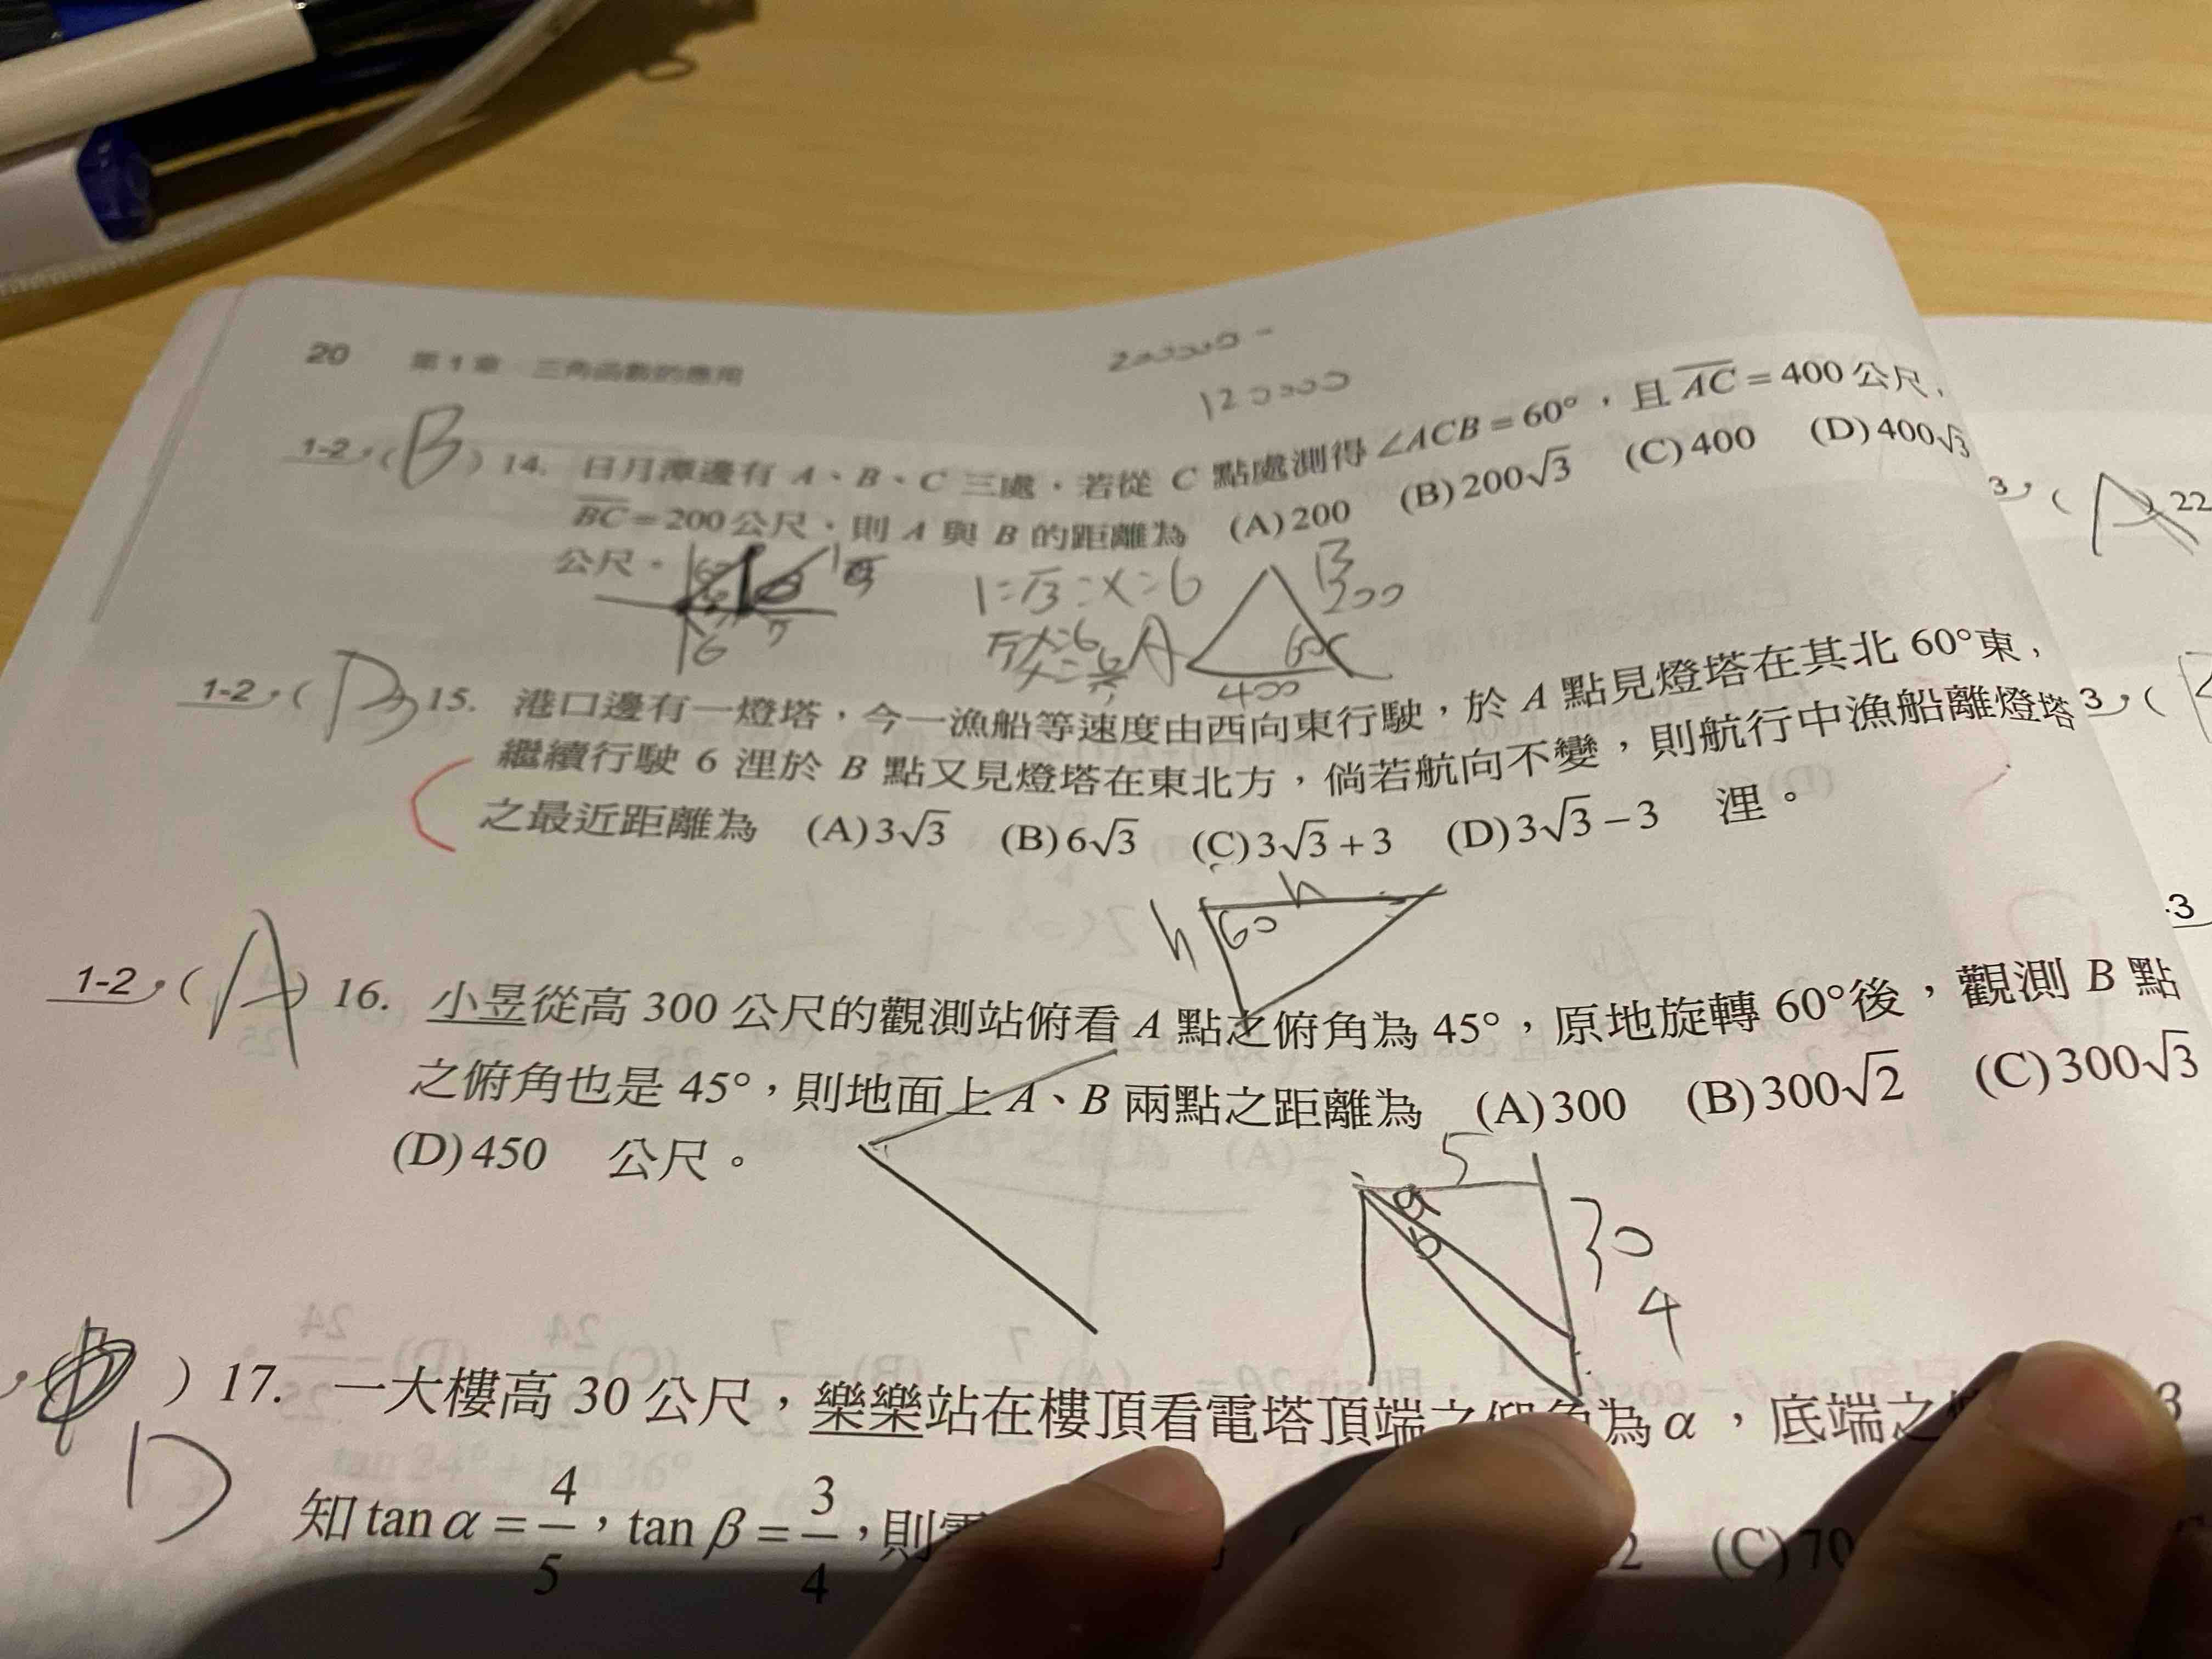 20 第1章 三角函數的應用
200000 -
120000
1-2 (B) 14. 日月潭邊有 A、B、C 三處,若從 C 點處測得 ∠ACB = 60°,且 AC = 400 公尺,
BC = 200 公尺,則 A 與 B 的距離為 (A) 200 (B) 200√3 (C) 400 (D) 400√3
公尺。
1:√3 = x:6
B
200
A
60
400
1-2 ( ) 15. 港口邊有一燈塔,今一漁船等速度由西向東行駛,於 A 點見燈塔在其北 60°東,
繼續行駛 6 浬於 B 點又見燈塔在東北方,倘若航向不變,則航行中漁船離燈塔
之最近距離為 (A) 3√3 (B) 6√3 (C) 3√3 + 3 (D) 3√3 − 3 浬。
h
h 60
1-2 (A) 16. 小昱從高 300 公尺的觀測站俯看 A 點之俯角為 45°,原地旋轉 60°後,觀測 B 點
之俯角也是 45°,則地面上 A、B 兩點之距離為 (A) 300 (B) 300√2 (C) 300√3
(D) 450 公尺。
5
a
b
30
4
) 17. 一大樓高 30 公尺,樂樂站在樓頂看電塔頂端之 為 α,底端之
D
知 tan α = 4/5,tan β = 3/4,則 (C) 70
3 (A) 22
3 (
-3